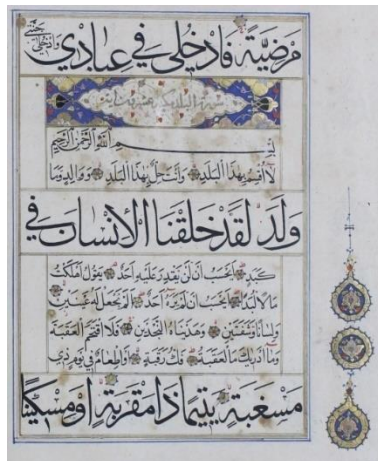 مَرْضِيَّةً فَادْخُلِي فِي عِبَادِي وَادْخُلِي جَنَّتِي
سورة البلد مكية عشرون اية
بِسْمِ اللَّهِ الرَّحْمَنِ الرَّحِيمِ
لَا أُقْسِمُ بِهَذَا الْبَلَدِ وَأَنْتَ حِلٌّ بِهَذَا الْبَلَدِ وَوَالِدٍ وَمَا
وَلَدَ لَقَدْ خَلَقْنَا الْإِنْسَانَ فِي
كَبَدٍ أَيَحْسَبُ أَنْ لَنْ يَقْدِرَ عَلَيْهِ أَحَدٌ يَقُولُ أَهْلَكْتُ
مَالًا لُبَدًا أَيَحْسَبُ أَنْ لَمْ يَرَهُ أَحَدٌ أَلَمْ نَجْعَلْ لَهُ عَيْنَيْنِ
وَلِسَانًا وَشَفَتَيْنِ وَهَدَيْنَاهُ النَّجْدَيْنِ فَلَا اقْتَحَمَ الْعَقَبَةَ
وَمَا أَدْرَاكَ مَا الْعَقَبَةُ فَكُّ رَقَبَةٍ أَوْ إِطْعَامٌ فِي يَوْمٍ ذِي
مَسْغَبَةٍ يَتِيمًا ذَا مَقْرَبَةٍ أَوْ مِسْكِينًا